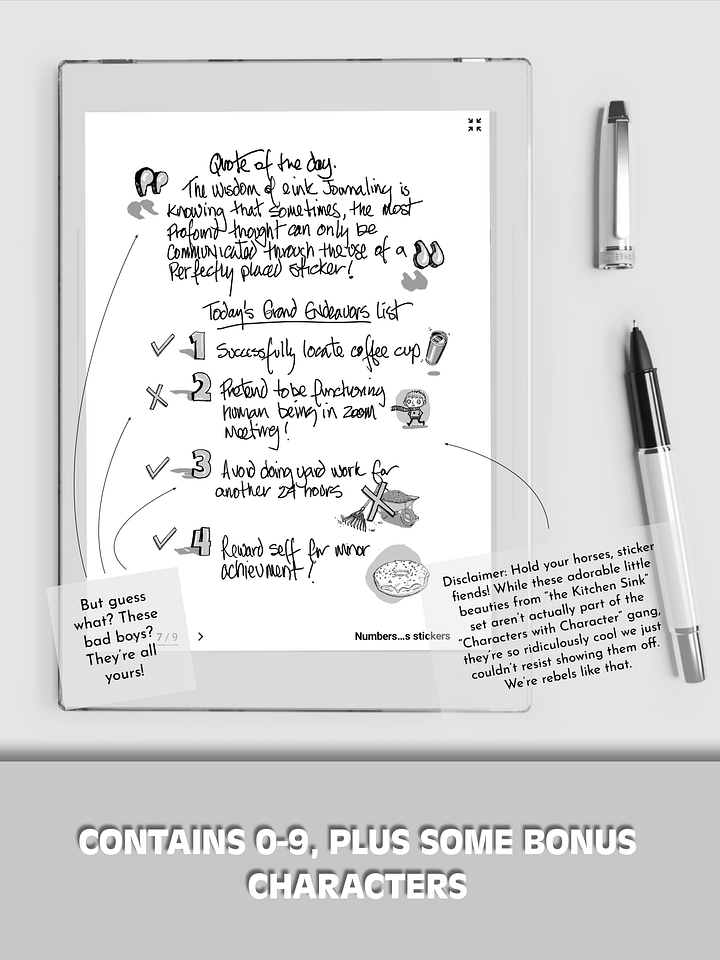 Quote of the day.
The wisdom of eink Journaling is
knowing that sometimes, the most
Profound thought can only be
communicated through the use of a
Perfectly placed sticker!
Today's Grand Endeavors List
1 Successfully locate coffee cup
2 Pretend to be functioning
human being in zoom
meeting!
3 Avoid doing yard work for
another 24 hours
4 Reward self for minor
achievment!
But guess
what? These
bad boys?
They're all
yours!
7 / 9
Numbers...s stickers
Disclaimer: Hold your horses, sticker
fiends! While these adorable little
beauties from "the Kitchen Sink"
set aren't actually part of the
"Characters with Character" gang,
they're so ridiculously cool we just
couldn't resist showing them off.
We're rebels like that.
CONTAINS 0-9, PLUS SOME BONUS
CHARACTERS